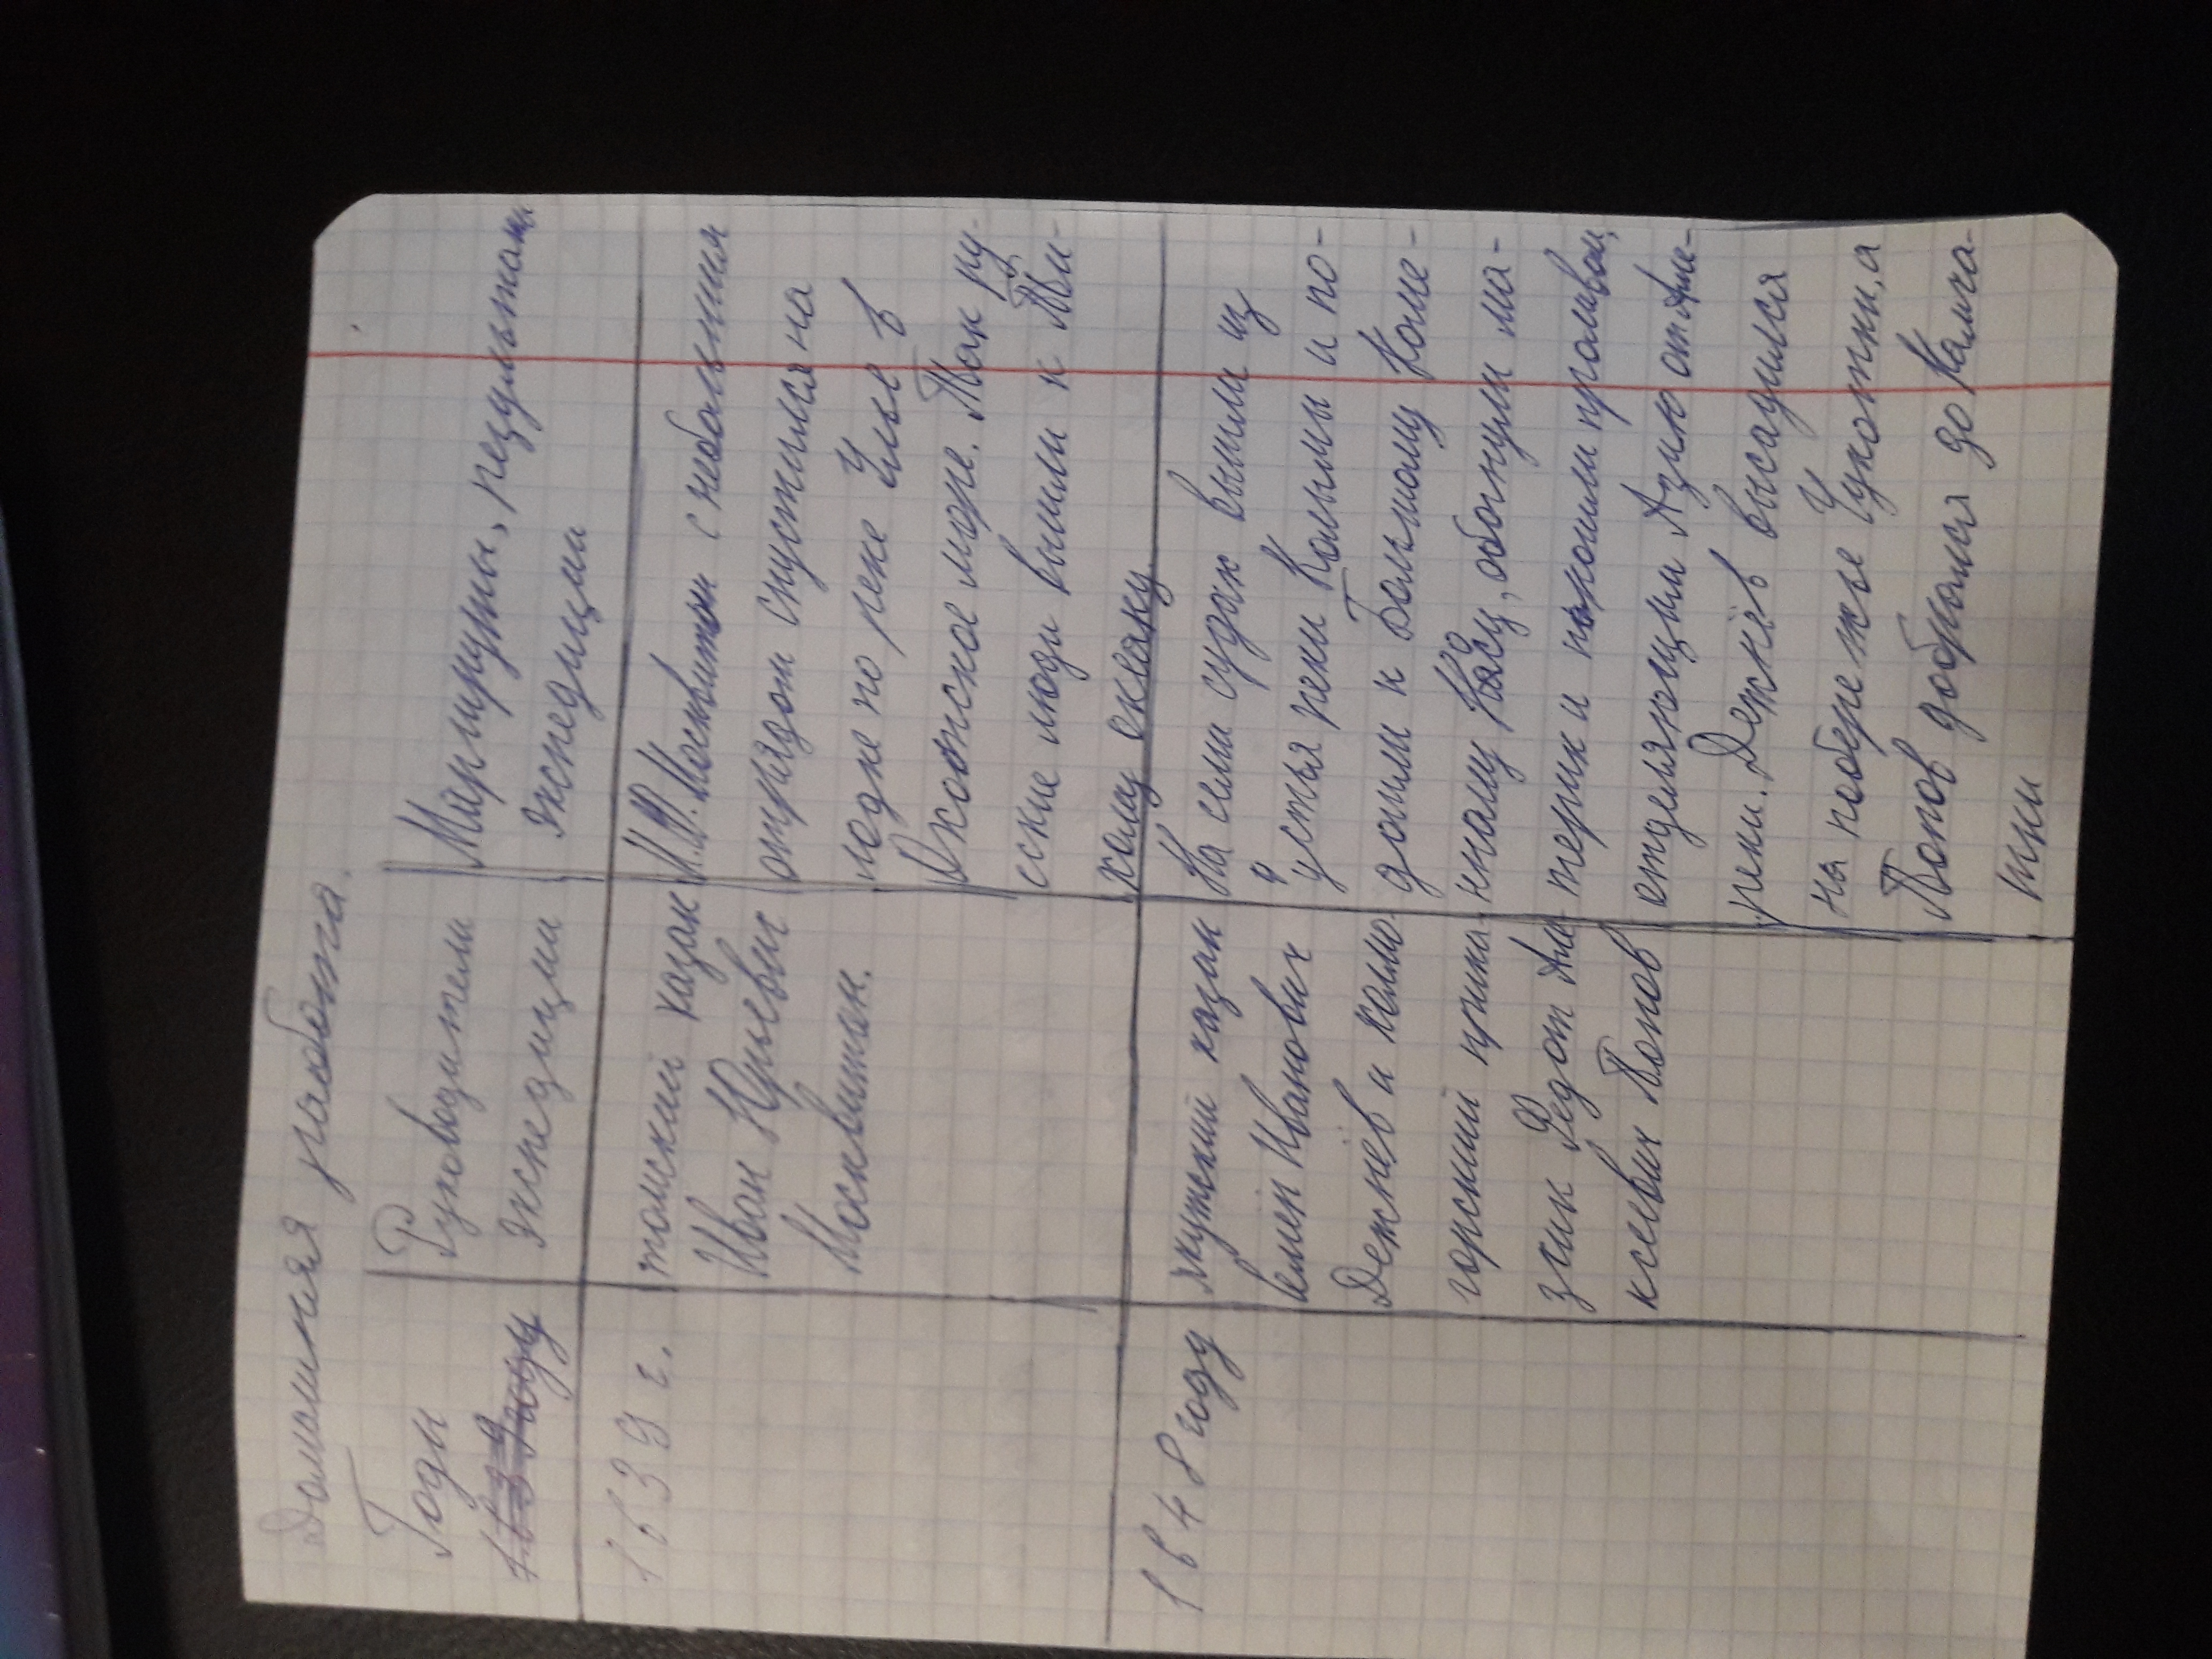 Домашняя работа.
Годы
Руководители
экспедиции
Маршруты, результаты
экспедиции
1639 г.
томский казак
Иван Юрьевич
Москвитин.
И.Ю. Москвитин с небольшим
отрядом спустился на
лодке по реке Улье в
Охотское море. Так ру-
сские люди вышли к Ти-
хому океану
1648 году
якутский казак
Иванович
Дежнёв и холмо
горский прика-
зчик Федот Але
ксеевич Попов
На семи судах вышли из
устья реки Колымы и по-
дошли к Большому Каме-
нному Носу, обогнули ма-
терик и прошли проливом,
отделяющим Азию от Аме-
рики. Дежнёв высадился
на побережье Чукотки, а
Попов добрался до Камча-
тки